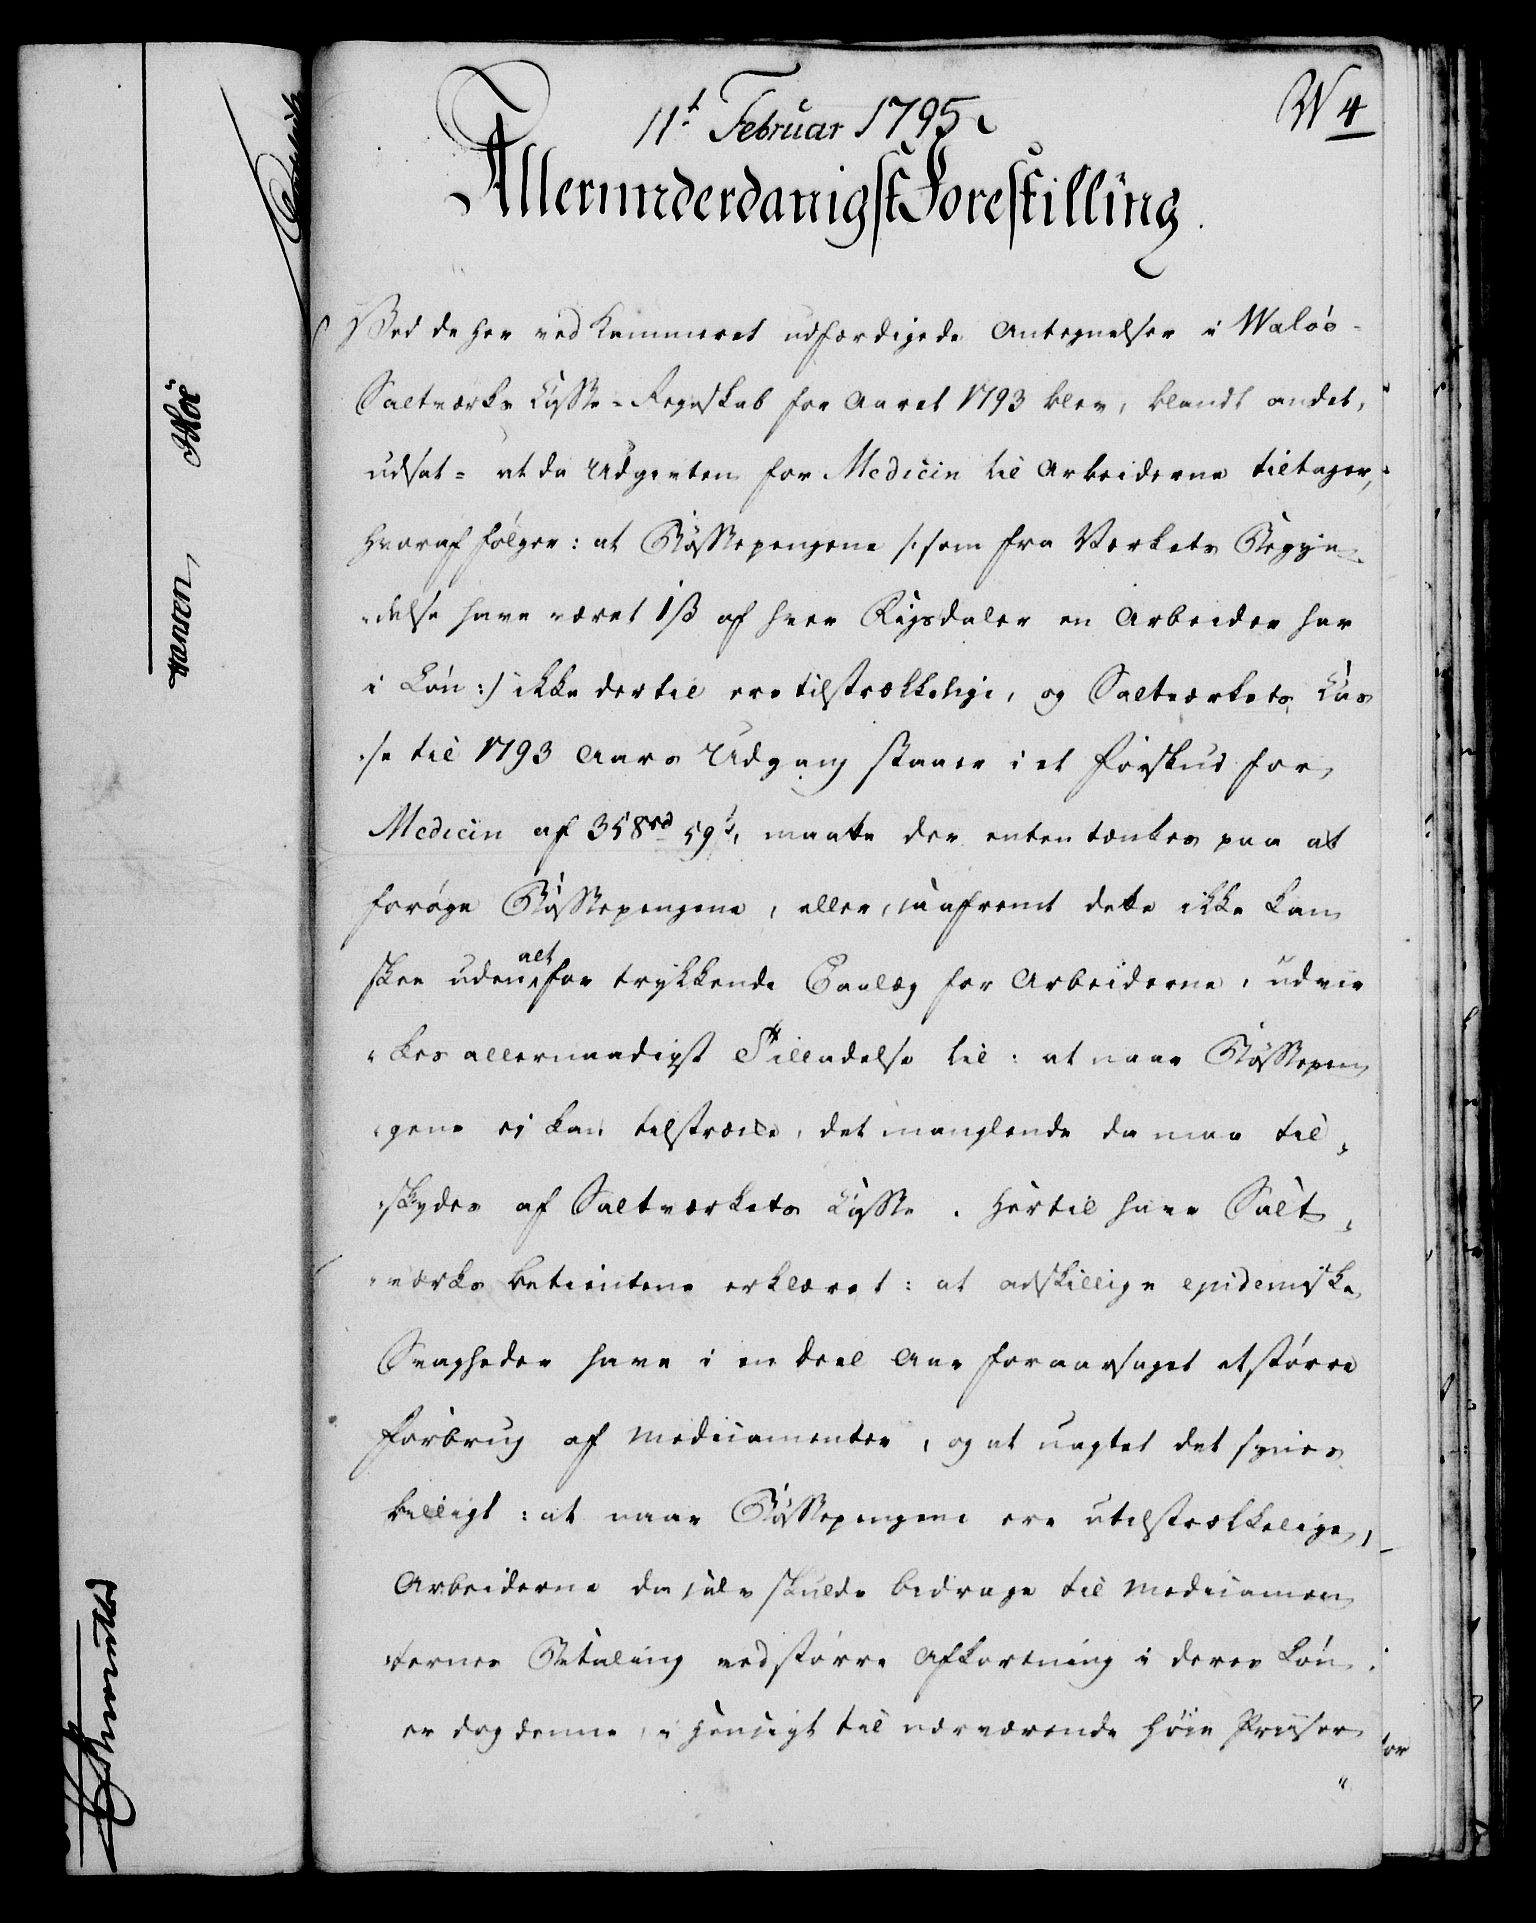 11t Februar 1795.
N 4
Allerunderdanigst Forestilling.
Ved de her ved Kammeret udfærdigede Antegnelser i Waløe
Saltværks Casse-Regnskab for Aaret 1793 blev, blandt andet,
udsat = at da Udgivten for Medicin til Arbeiderne tiltager,
hvoraf følger: at Bøssepengene /: som fra Værkets Begyn
delse have været 1 ß af hver Rigsdaler en Arbeider har
i Løn :/ ikke dertil ere tilstrækkelige, og Saltværkets Cas
se til 1793 Aars Udgang staaer i et Forskud for
Medicin af 358 rd 59 ß, maatte der enten tænkes paa at
forøge Bøssepengene, eller, saafremt dette ikke kan
skee uden alt for trykkende Paalæg for Arbeiderne, udvir
kes allernaadigst Tilladelse til: at naar Bøssepen
gene ei kan tilstrække, det manglende da maa til
skydes af Saltværkets Casse. Hertil have Salt
værks betientene erklæret: at adskillige epidemiske
Svagheder have i en deel Aar foraarsaget et større
Forbrug af Medicamenter, og at uagtet det synes
billigt: at naar Bøssepengene ere utilstrækkelige,
Arbeiderne da selv skulde bidrage til Medicamen
ternes Betaling ved større Afkortning i deres Løn,
er dog denne, i Hensigt til nærværende høie Priiser